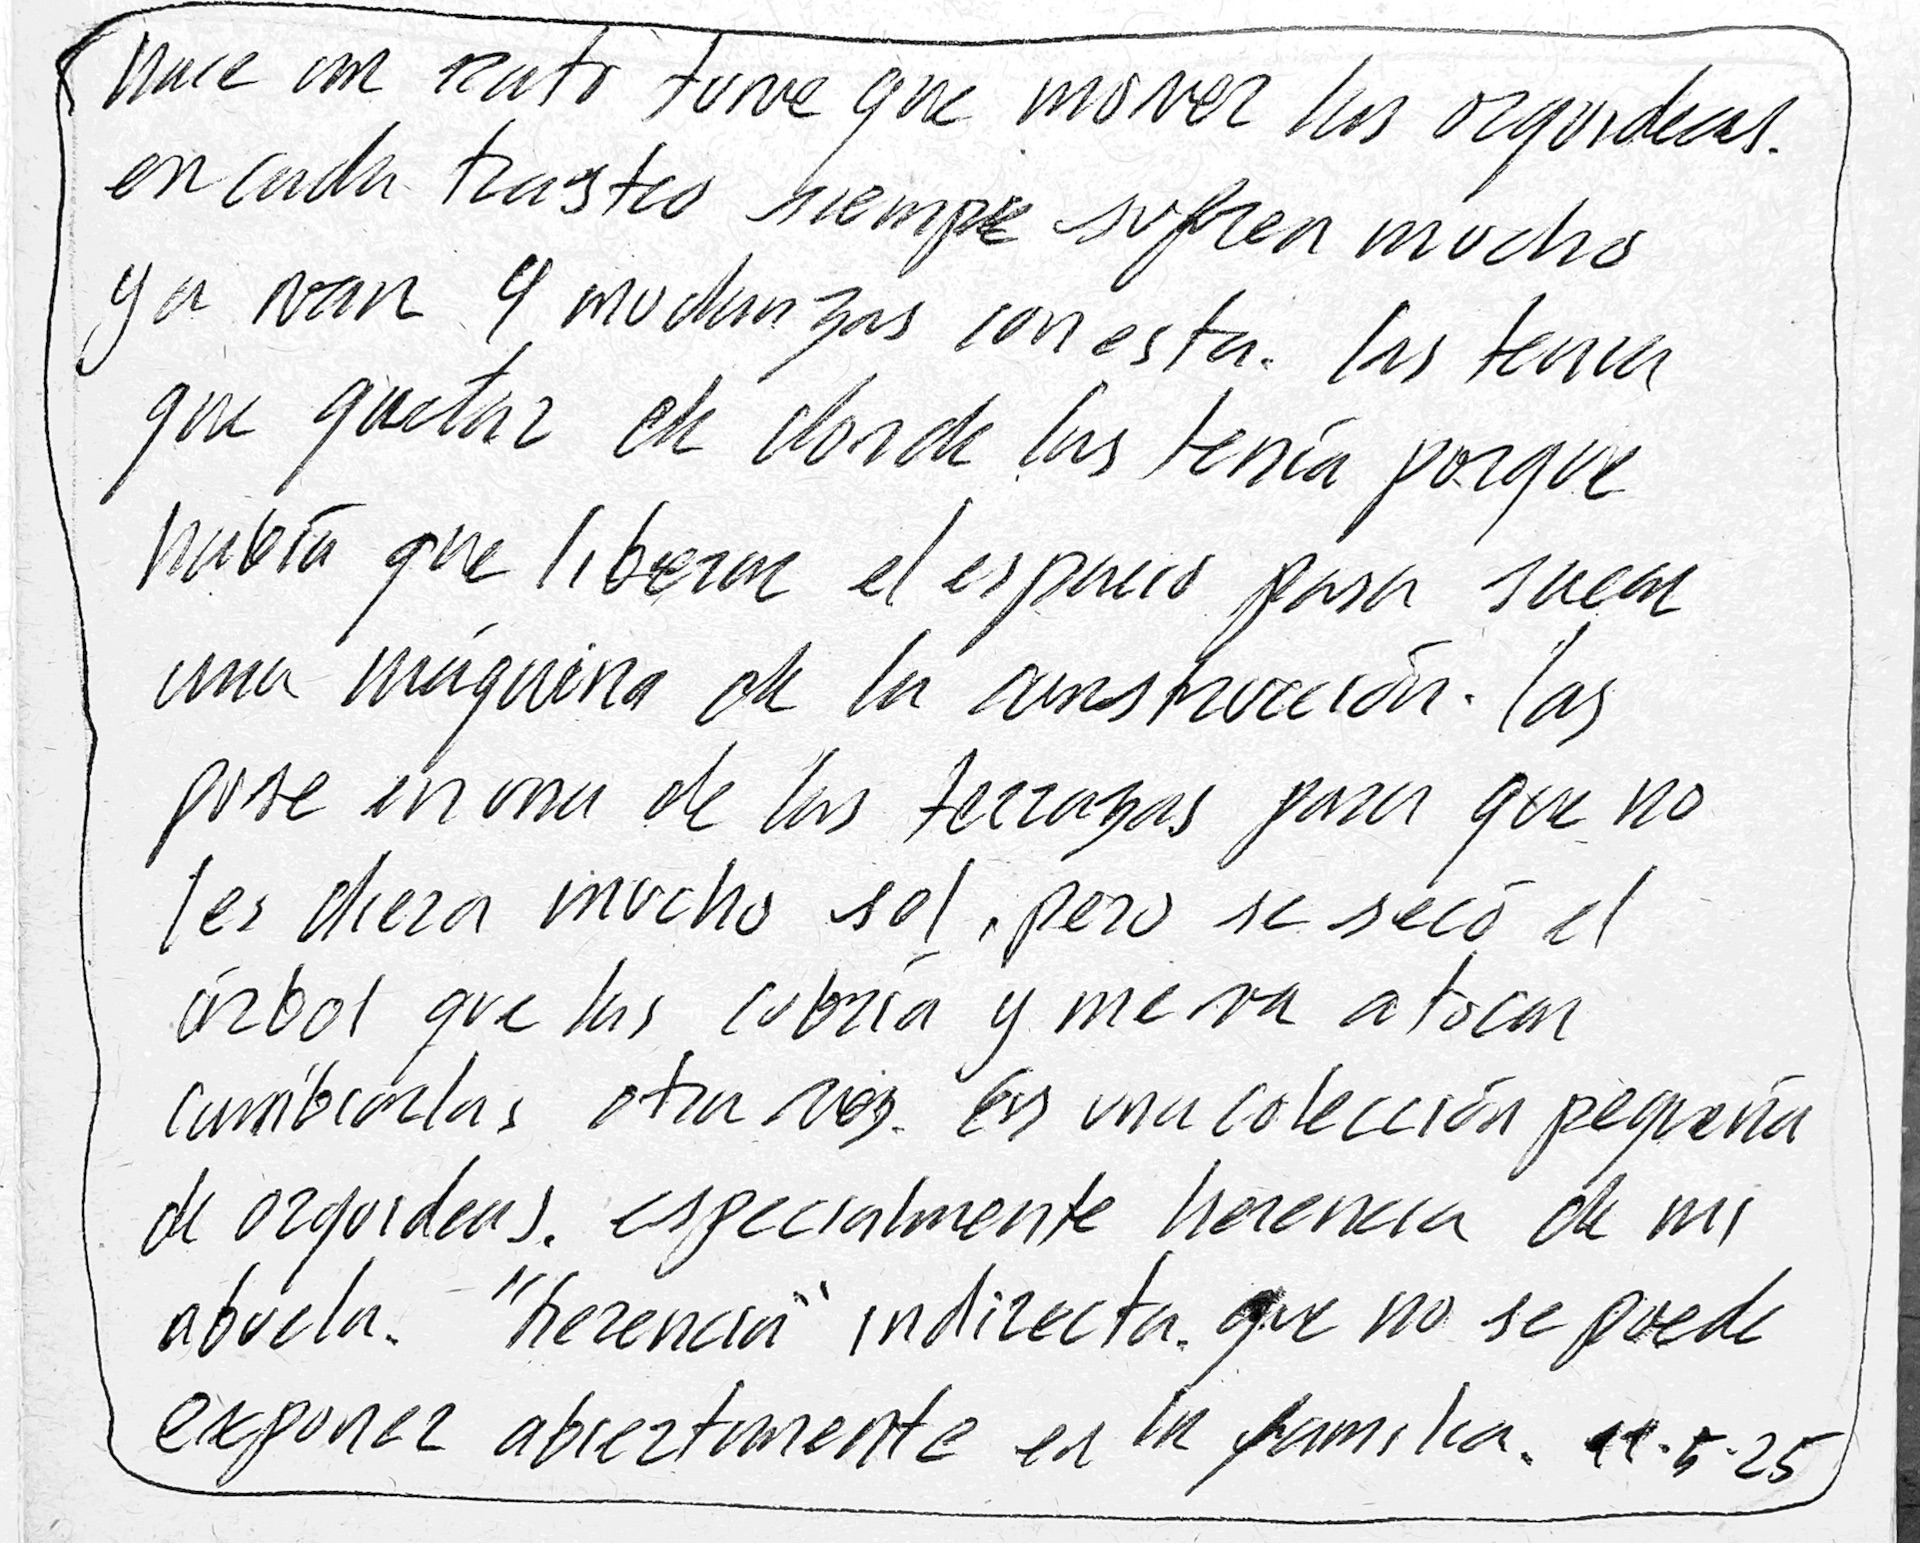 hace un rato tuve que mover las orquideas.
en cada trasteo siempre sufren mucho
ya van 4 mudanzas con esta. las tenia
que quitar de donde las tenía porque
había que liberar el espacio para sacar
una máquina de la construcción. las
puse en una de las terrazas para que no
les diera mucho sol. pero se secó el
árbol que las cubría y me va a tocar
cambiarlas otra vez. Es una colección pequeña
de orquideas. especialmente herencia de mi
abuela. "herencia" indirecta. que no se puede
exponer abiertamente en la familia. 11.5.25